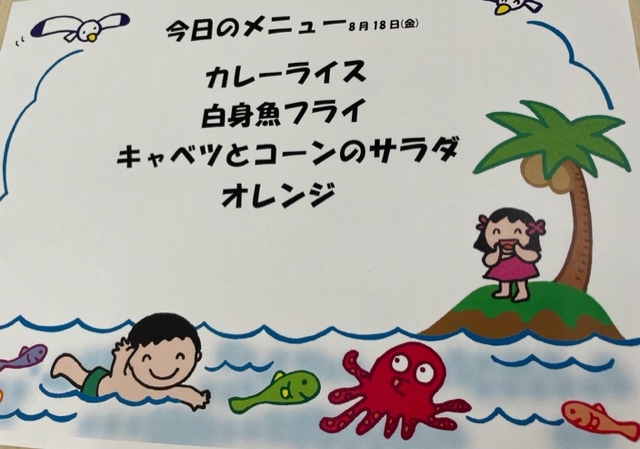 今日のメニュー 8月18日(金)
カレーライス
白身魚フライ
キャベツとコーンのサラダ
オレンジ